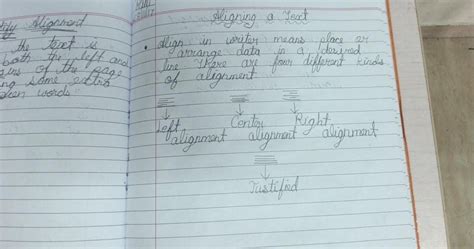 Alignment
the text is
both the left and
of the page
some extra
words
Aligning a Text
• Align in writer means place or
arrange data in a desired
line. There are four different kinds
of alignment
Left alignment
Center alignment
Right alignment
Justified